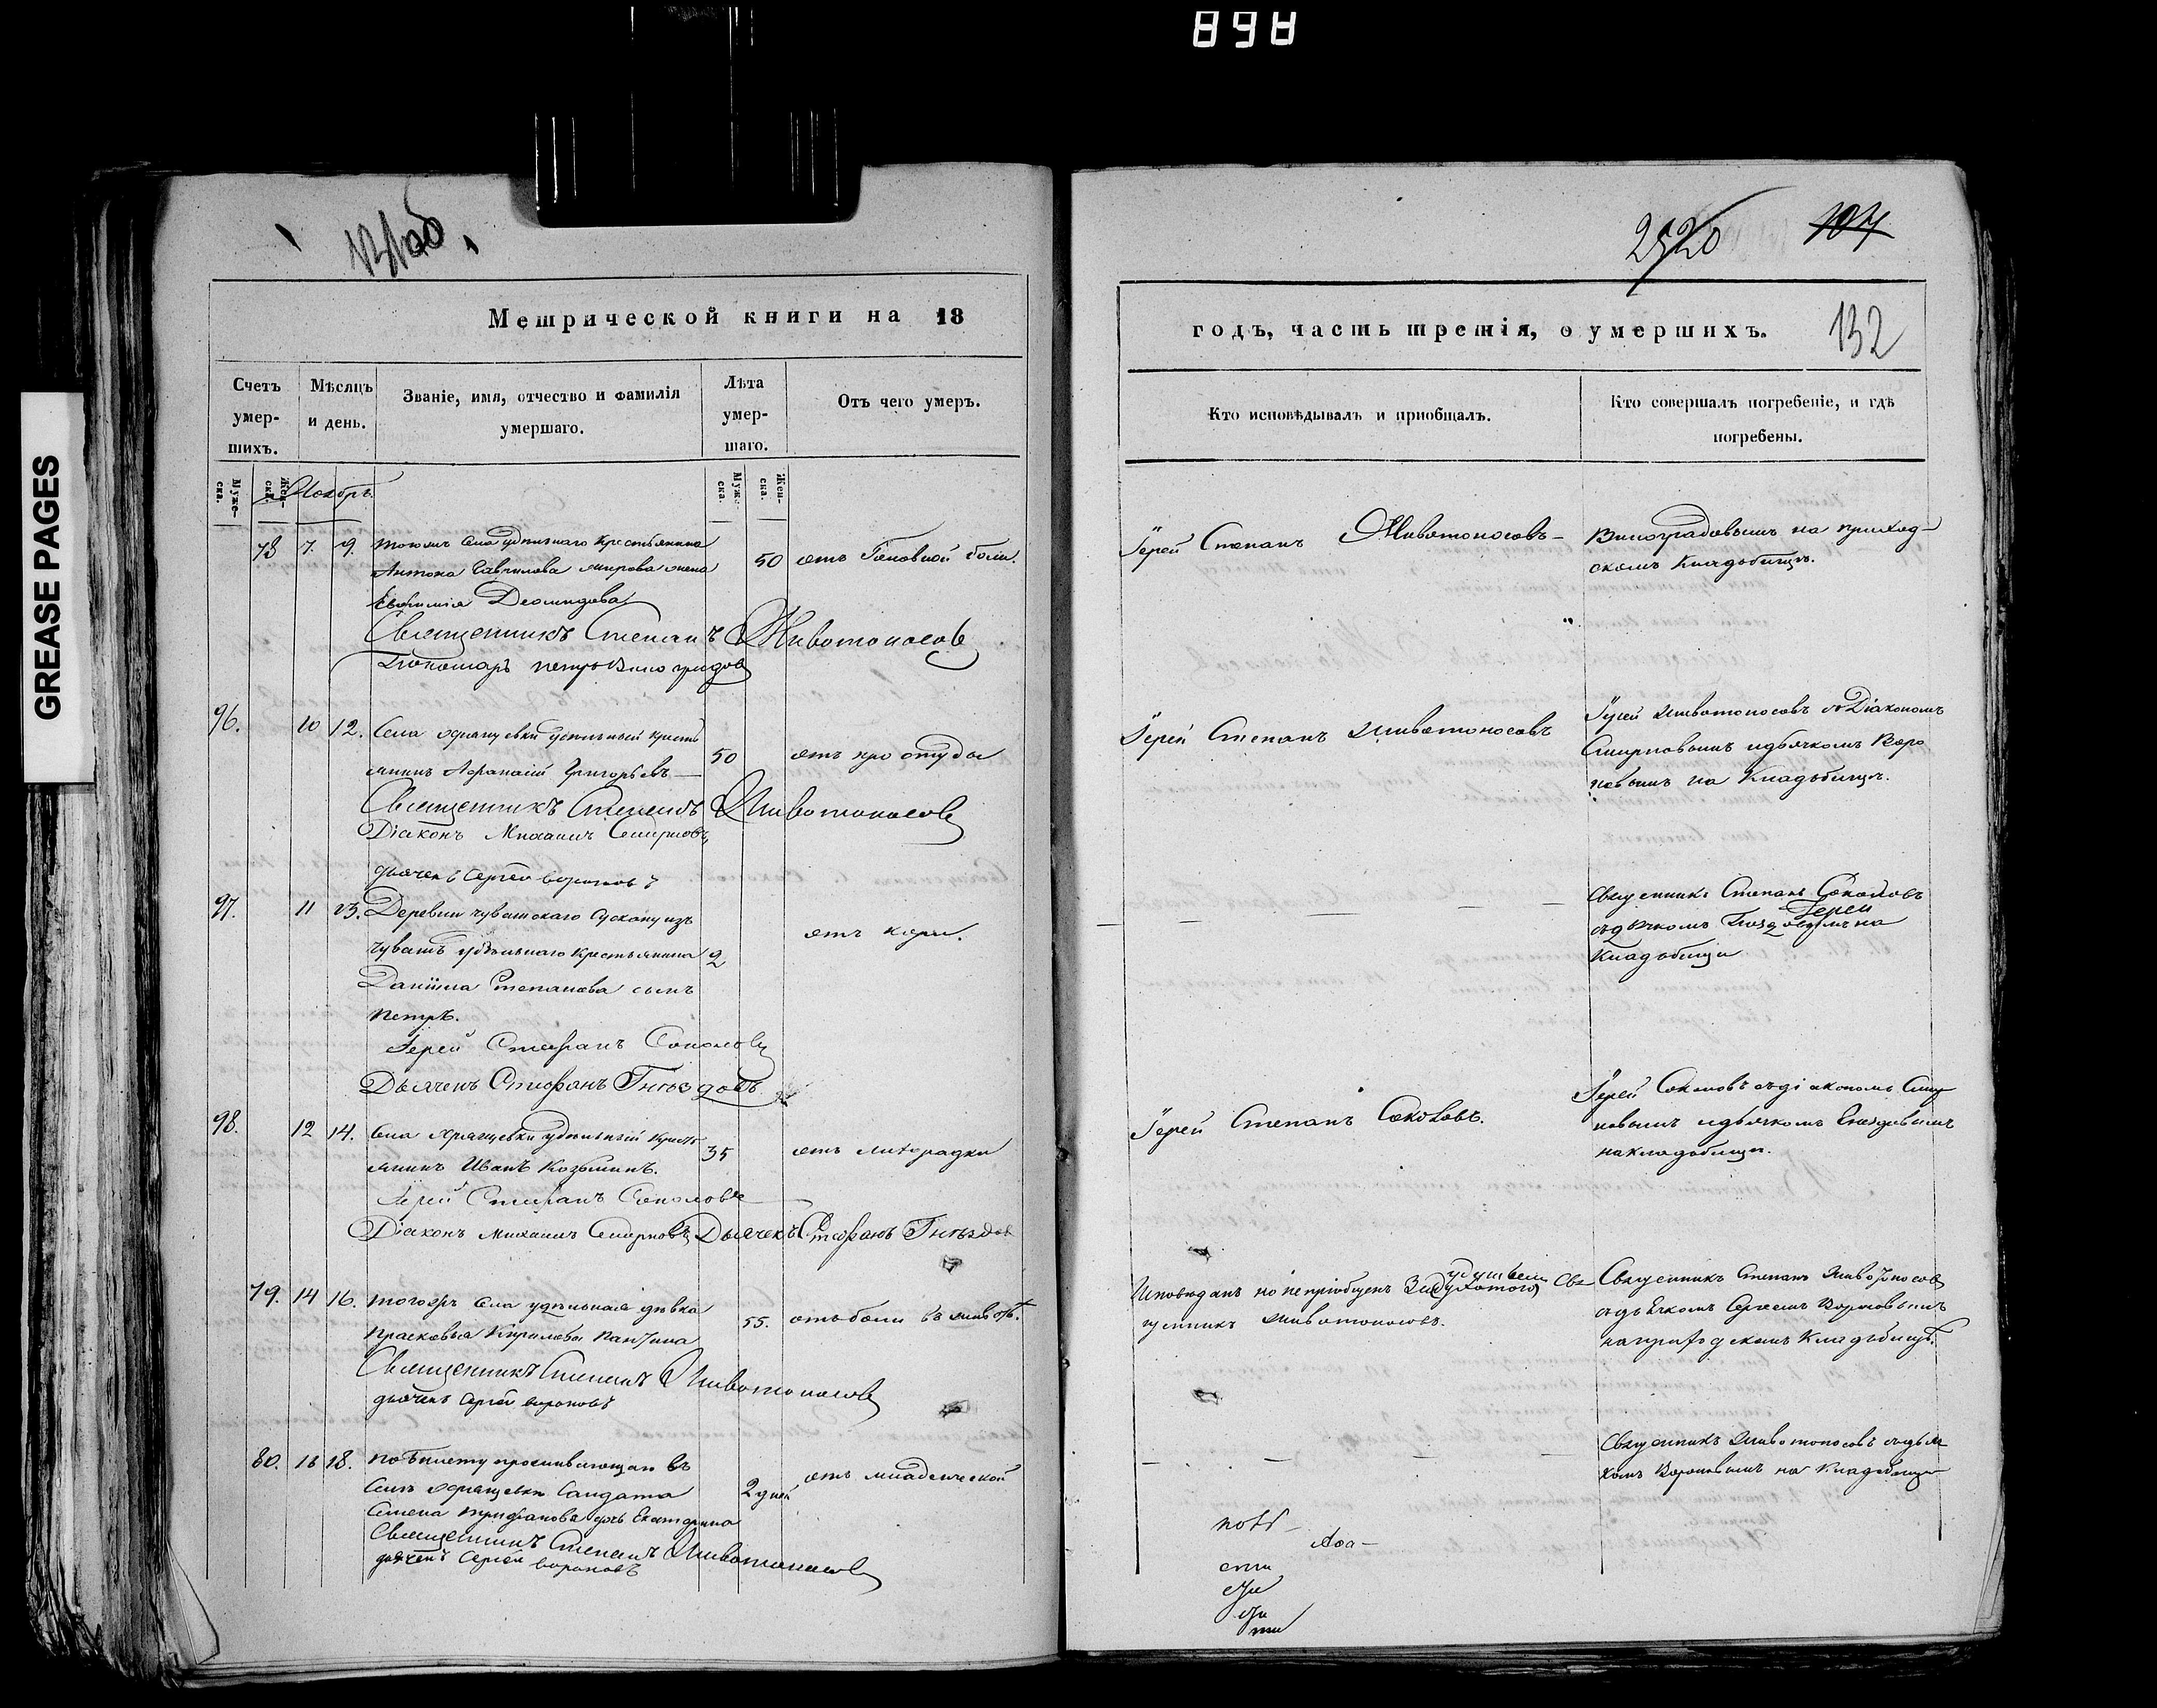 898
GREASE PAGES
131об.
Метрической книги на 18
Счетъ умер-шихъ.
Мѣсяцъ и день.
Званіе, имя, отчество и фамилія умершаго.
Лѣта умер-шаго.
Отъ чего умеръ.
Муже-ска.
Жен-ска.
Ноябрь.
Муже-ска.
Жен-ска.
78 7. 9. тогожъ села удѣльнаго крестьянина
Антона Гаврилова жена 50 отъ головной боли.
Евфимія Деомидова
Священникъ Степанъ Животоносовъ
Пономарь Петръ Виноградов
96. 10 12. Села удѣльный кресть
янинъ Афанасій Григорьевъ 50 отъ простуды
Священникъ Степанъ Животоносовъ
Діаконъ Михаилъ Смирновъ
дьячекъ Сергей Вороновъ
97. 11 13. Деревни чувашскаго изъ
чувашъ удѣльнаго крестьянина 2 отъ кори.
Даніила Степанова сынъ
Петръ.
Іерей Стефанъ Соколовъ
Дьячекъ Стефанъ Гнѣздовъ
98. 12 14. Села Хрящевки удѣльный кресть
янинъ Иванъ Козьминъ. 35 отъ лихорадки
Іерей Стефанъ Соколовъ
Діаконъ Михаилъ Смирновъ Дьячекъ Стефанъ Гнѣздов
79. 14 16. тогожъ села удѣльная дѣвка
Прасковья Кирилова 55. отъ боли въ животѣ.
Священникъ Степанъ Животоносовъ
дьячекъ Сергей Вороновъ
80. 16 18. По билету проживающаго въ
селѣ Хрящевки солдата 2 дней отъ младенческой
Трифанова дочь Екатерина
Священникъ Степанъ Животоносовъ
дьячекъ Сергей Вороновъ
2520 104
годъ, часть третія, о умершихъ. 132
Кто исповѣдывалъ и пріобщалъ.
Кто совершалъ погребеніе, и гдѣ погребены.
Іерей Степанъ Животоносовъ Виноградовымъ на приход-
скомъ кладбищѣ.
Іерей Степанъ Животоносовъ Іерей Животоносовъ съ Діакономъ
Смирновымъ и дьячкомъ Воро
новымъ на кладбищѣ.
Священникъ Степанъ Соколовъ
Іерей
съ дьячкомъ на
кладбищи
Іерей Степанъ Соколовъ. Іерей Соколовъ съ діакономъ Смир
новымъ и дьячкомъ Гнездовымъ
на кладбищѣ.
Исповѣданъ но не пріобщенъ Свя Священникъ Степанъ Животоносовъ
щенникъ Животоносовъ. съ дьячкомъ Сергеемъ Вороновымъ
на приходскомъ кладбищѣ.
Священникъ Животоносовъ съ дья
комъ Вороновымъ на кладбищѣ